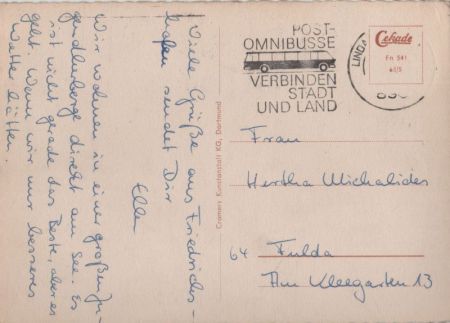 Viele Grüße aus Friedrichs-
hafen sendet Dir
Ellen
Wir wohnen in einer großen Ju-
gendherberge direkt am See. Es
ist nicht gerade das Beste, aber es
geht. Wenn wir nur besseres
Wetter hätten.
Cramers Kunstanstalt KG, Dortmund
POST-
OMNIBUSSE
VERBINDEN
STADT
UND LAND
LINDA
Cekade
Fn 541
Frau
Hertha Michalides
64 Fulda
Am Kleegarten 13